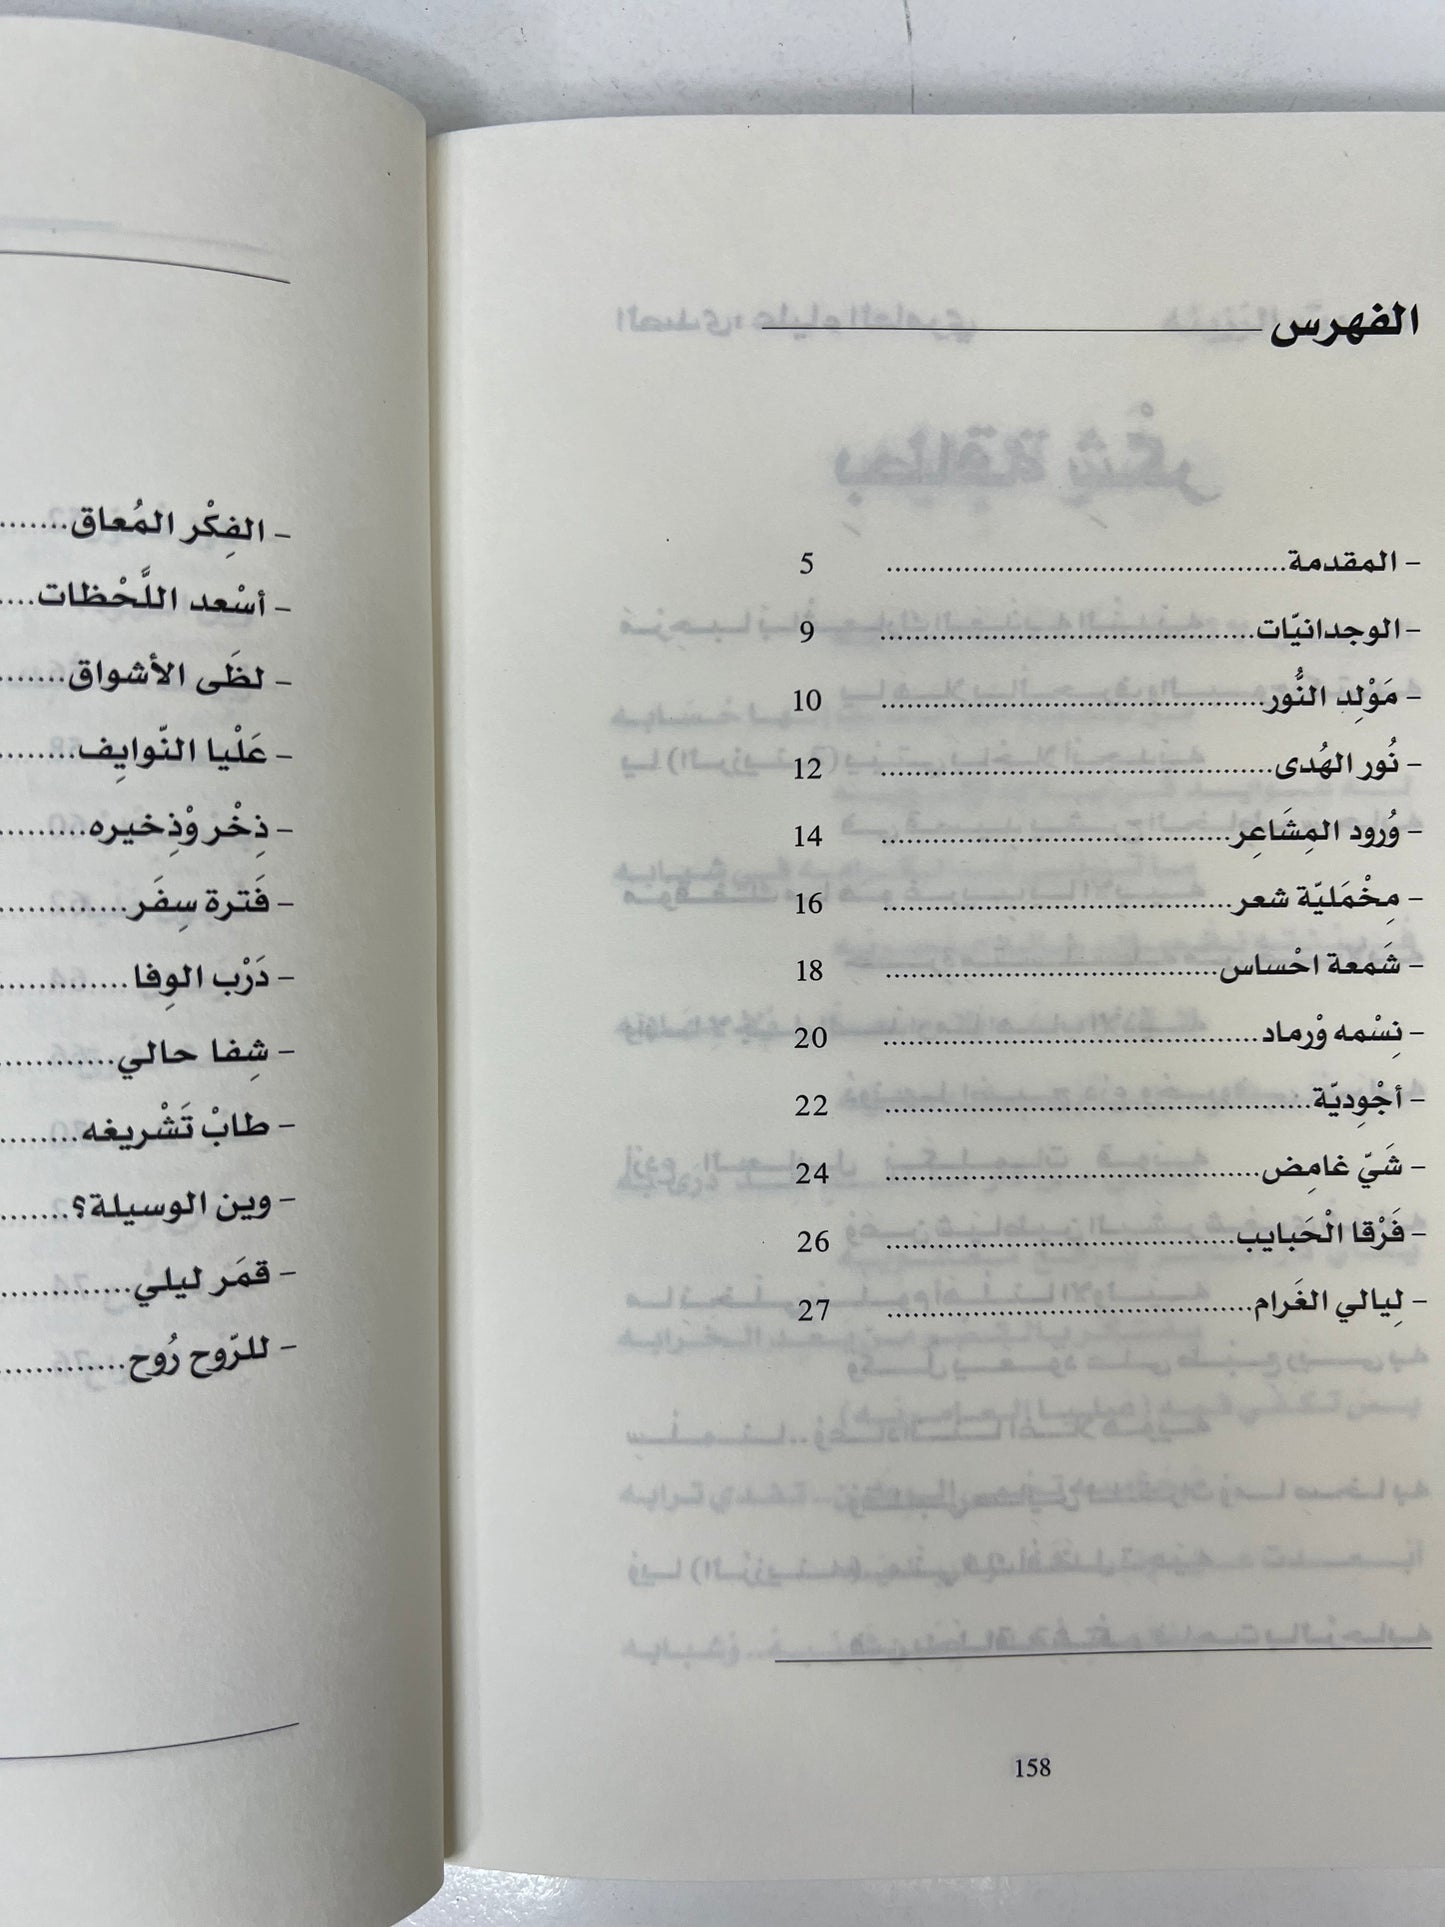 الفهرس
- المقدمة........................................ 5
- الوجدانيّات........................................ 9
- مَوْلِد النُّور........................................ 10
- نُور الهُدى........................................ 12
- وُرود المِشَاعِر........................................ 14
- مِخْمَليّة شعر........................................ 16
- شَمعة احْساس........................................ 18
- نِسْمه وْرماد........................................ 20
- أجْوِديّة........................................ 22
- شَيّ غامِض........................................ 24
- فَرْقا الْحَبايب........................................ 26
- لِيالي الغَرام........................................ 27
158
- الفِكْر المُعاق.......
- أسْعد اللَّحْظات....
- لظَى الأشواق.......
- عَلْيا النّوايِف........
- ذِخْر وْذِخيره.........
- فَترة سِفَر............
- دَرْب الوِفا............
- شِفا حالي............
- طابْ تَشْريفه........
- وين الوسيلة؟.......
- قمَر ليلي............
- للرّوح رُوح............